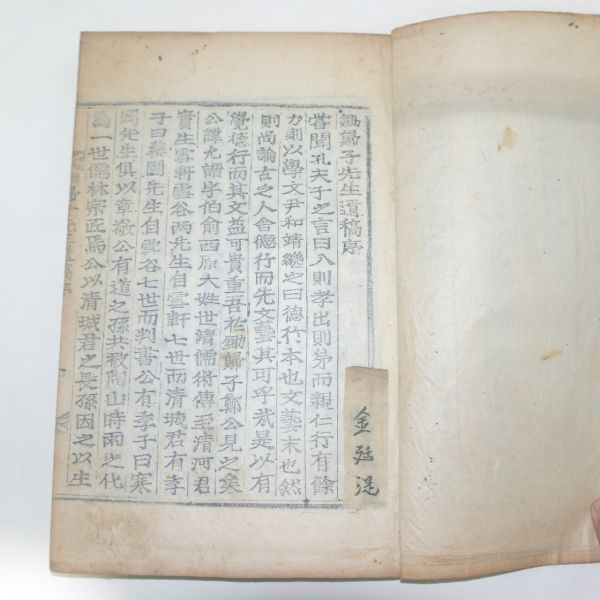 鋤歸子先生遺稿序
嘗聞孔夫子之言曰入則孝出則弟而親仁行有餘
力則以學文尹和靖繼之曰德行本也文藝末也然
則尚論古之人舍德行而先文藝其可乎哉是以有
覺德行而其文益可貴重吾於鋤歸子鄭公見之矣
公諱允諧字伯兪西原大姓世濟儒術傳至淸河君
實生雪軒雪谷兩先生自雪軒七世而淸城君有季
子曰藥圃先生自雪谷七世而判書公有季子曰寒
岡先生俱以章敬公有道之孫共被陶山時雨之化
爲一世儒林宗匠焉公以淸城君之長孫因之以生
金